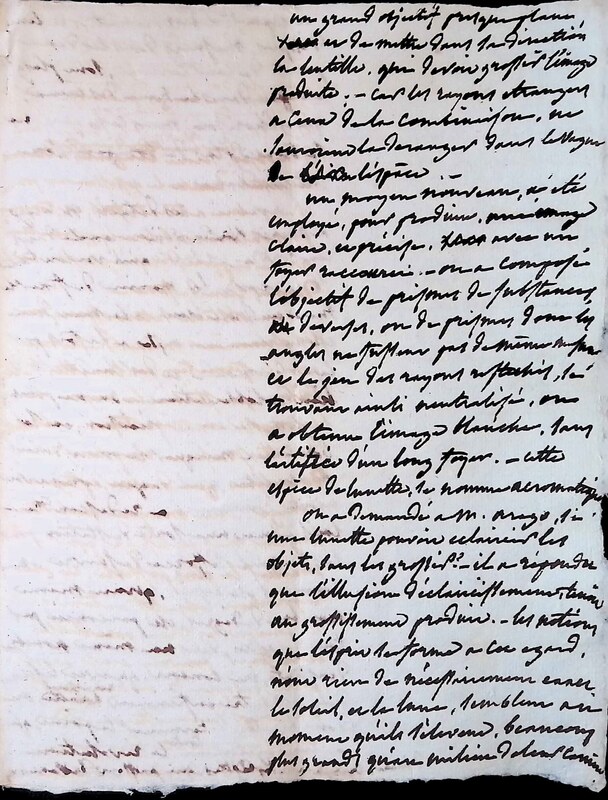 un grand objectif presque plane,
et de mettre dans la direction
la lentille, qui devoit grossir l'image
produite. - car les rayons etrangers
a ceux de la combinaison, ne
sauroient la deranger dans le vague
de l'espace. -
un moyen nouveau, a été
employé, pour produire, une image
claire, et précise, avec un
foyer raccourci. - on a composé
l'objectif de prismes de substances
diverses, ou de prismes dont les
angles ne fussent pas de même mesure
et le jeu des rayons reflechis, s'é
trouvant ainsi neutralisé, on
a obtenu l'image blanche, sans
l'artifice d'un long foyer. - cette
espèce de lunette, se nomme acromatique
on a demandé a M. arago, si
une lunette pouvoit eclaircir les
objets, sans les grossir? - il a répondu
que l'illusion d'éclaircissement, tenoit
au grossissement produit. - les notions
que l'esprit se forme a cet egard,
n'ont rien de nécessairement exact.
le soleil, et la lune, semblent au
moment qu'ils s'elevent, beaucoup
plus grands qu'au milieu de leur course